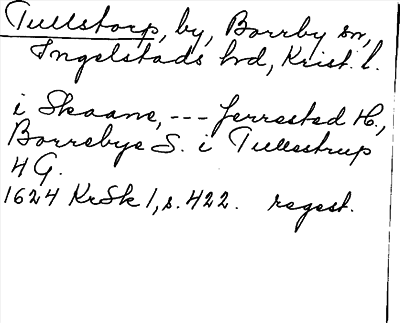 Tullstorp, by, Borrby sn,
Ingelstads hd, Krist. l.
i Skaane, --- Jerrested H.,
Borrebye S. i Tullestrup
4 G.
1624 KrSk 1, s. 422. regest.